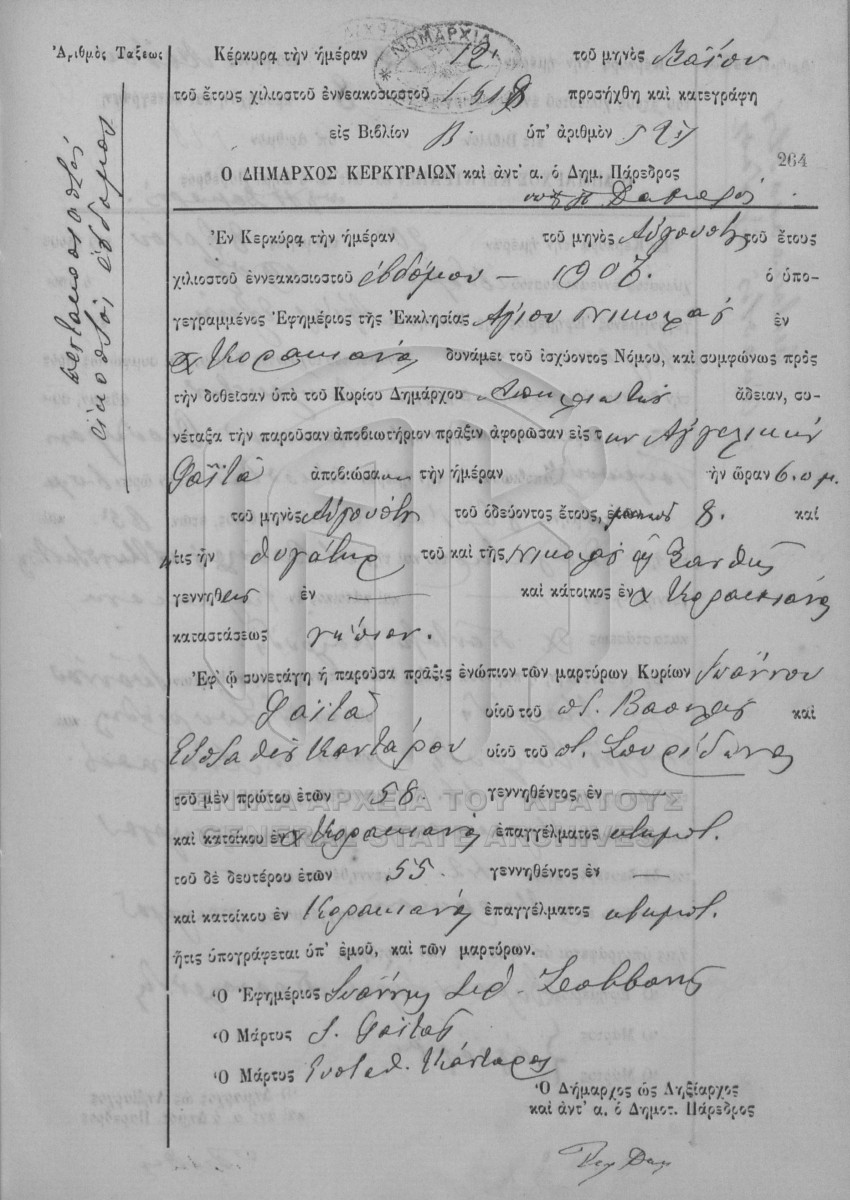 Ἀριθμὸς Τάξεως
πεντακοσιοστός
εἰκοστός ἕβδομος
ΝΟΜΑΡΧΙΑ
Κέρκυρα τὴν ἡμέραν 12 τοῦ μηνὸς Μαΐου
τοῦ ἔτους χιλιοστοῦ ἐννεακοσιοστοῦ 1918 προσήχθη καὶ κατεγράφη
εἰς Βιβλίον Β. ὑπ' ἀριθμὸν 527
264
Ο ΔΗΜΑΡΧΟΣ ΚΕΡΚΥΡΑΙΩΝ καὶ ἀντ' α. ὁ Δημ. Πάρεδρος
Ἐν Κερκύρᾳ τὴν ἡμέραν τοῦ μηνὸς Αὐγούστου τοῦ ἔτους
χιλιοστοῦ ἐννεακοσιοστοῦ ἑβδόμου – 1907. ὁ ὑπο-
γεγραμμένος Ἐφημέριος τῆς Ἐκκλησίας Ἁγίου Νικολάου ἐν
χ Κορακιάνα δυνάμει τοῦ ἰσχύοντος Νόμου, καὶ συμφώνως πρὸς
τὴν δοθεῖσαν ὑπὸ τοῦ Κυρίου Δημάρχου ἄδειαν, συ-
νέταξα τὴν παροῦσαν ἀποβιωτήριον πρᾶξιν ἀφορῶσαν εἰς τ ην Ἀγγελικὴν
Φαϊτᾶ ἀποβιώσα τὴν ἡμέραν ἣν ὥραν 6. π μ.
τοῦ μηνὸς Αὐγούστου τοῦ ὁδεύοντος ἔτους, 8. καὶ
τις ἦν θυγάτηρ τοῦ καὶ τῆς Νικολάου Ξανθῆς
γεννηθεις ἐν — καὶ κάτοικος ἐν χ Κορακιάνα
καταστάσεως νήπιον.
Ἐφ' ᾧ συνετάγη ἡ παροῦσα πρᾶξις ἐνώπιον τῶν μαρτύρων Κυρίων Ἰωάννου
Φαϊτᾶ υἱοῦ τοῦ π. Βασιλείου καὶ
Εὐσταθίου Κανταρου υἱοῦ τοῦ π. Σπυρίδωνος
τοῦ μὲν πρώτου ἐτῶν 58. γεννηθέντος ἐν —
καὶ κατοίκου ἐν χ Κορακιάνα ἐπαγγέλματος κτημτ.
τοῦ δὲ δευτέρου ἐτῶν 55. γεννηθέντος ἐν —
καὶ κατοίκου ἐν Κορακιάνα ἐπαγγέλματος κτημτ.
ἥτις ὑπογράφεται ὑπ' ἐμοῦ, καὶ τῶν μαρτύρων.
Ὁ Ἐφημέριος Ἰωάννης
Ὁ Μάρτυς Ι. Φαϊτας
Ὁ Μάρτυς Ευσταθ. Κάνταρος
Ὁ Δήμαρχος ὡς Ληξίαρχος
καὶ ἀντ' α. ὁ Δημοτ. Πάρεδρος
ΓΕΝΙΚΑ ΑΡΧΕΙΑ ΤΟΥ ΚΡΑΤΟΥΣ
GENERAL STATE ARCHIVES